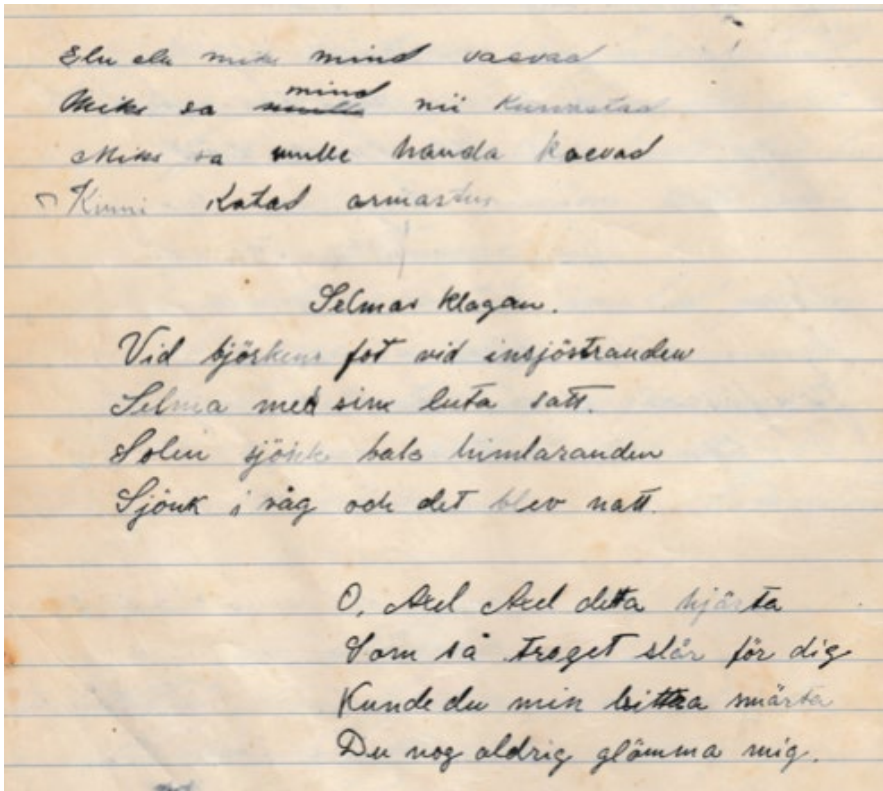 Elu elu miks mind vaevad
Miks sa mind nii kurvastad
Miks sa mulle hauda kaevad
Kinni katad armastus
Selmas klagan.
Vid björkens fot vid insjöstranden
Selma med sin luta satt.
Solen sjönk bak himlaranden
Sjönk i våg och det blev natt.
O, Axel Axel detta hjärta
Som så troget slår för dig
Kunde du min bittra smärta
Du nog aldrig glömma mig.